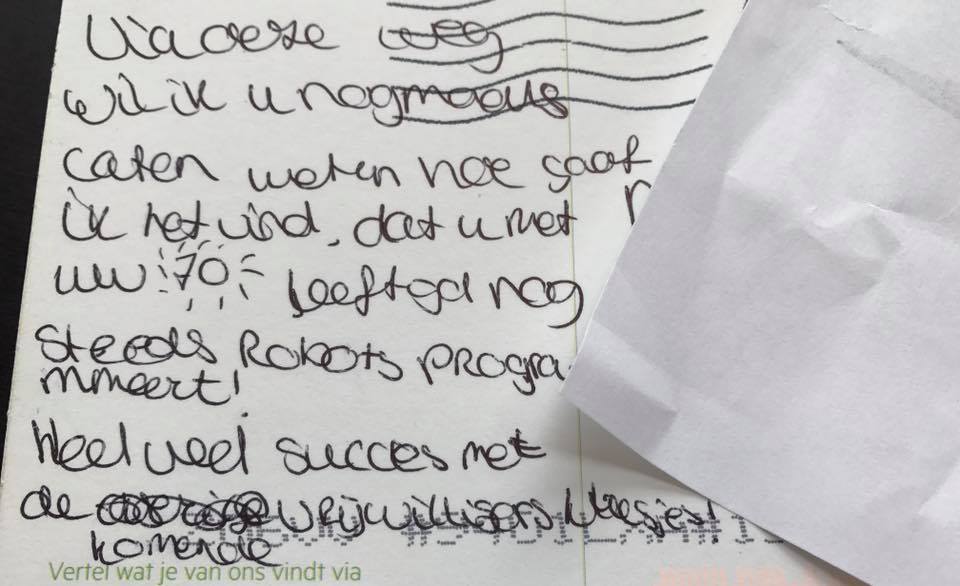 Via deze weg
wil ik u nogmaals
laten weten hoe gaaf
ik het vind, dat u met
uw 70 leeftijd nog
steeds Robots progra
mmeert!
Heel veel succes met
de vrijwilligers
komende
Vertel wat je van ons vindt via